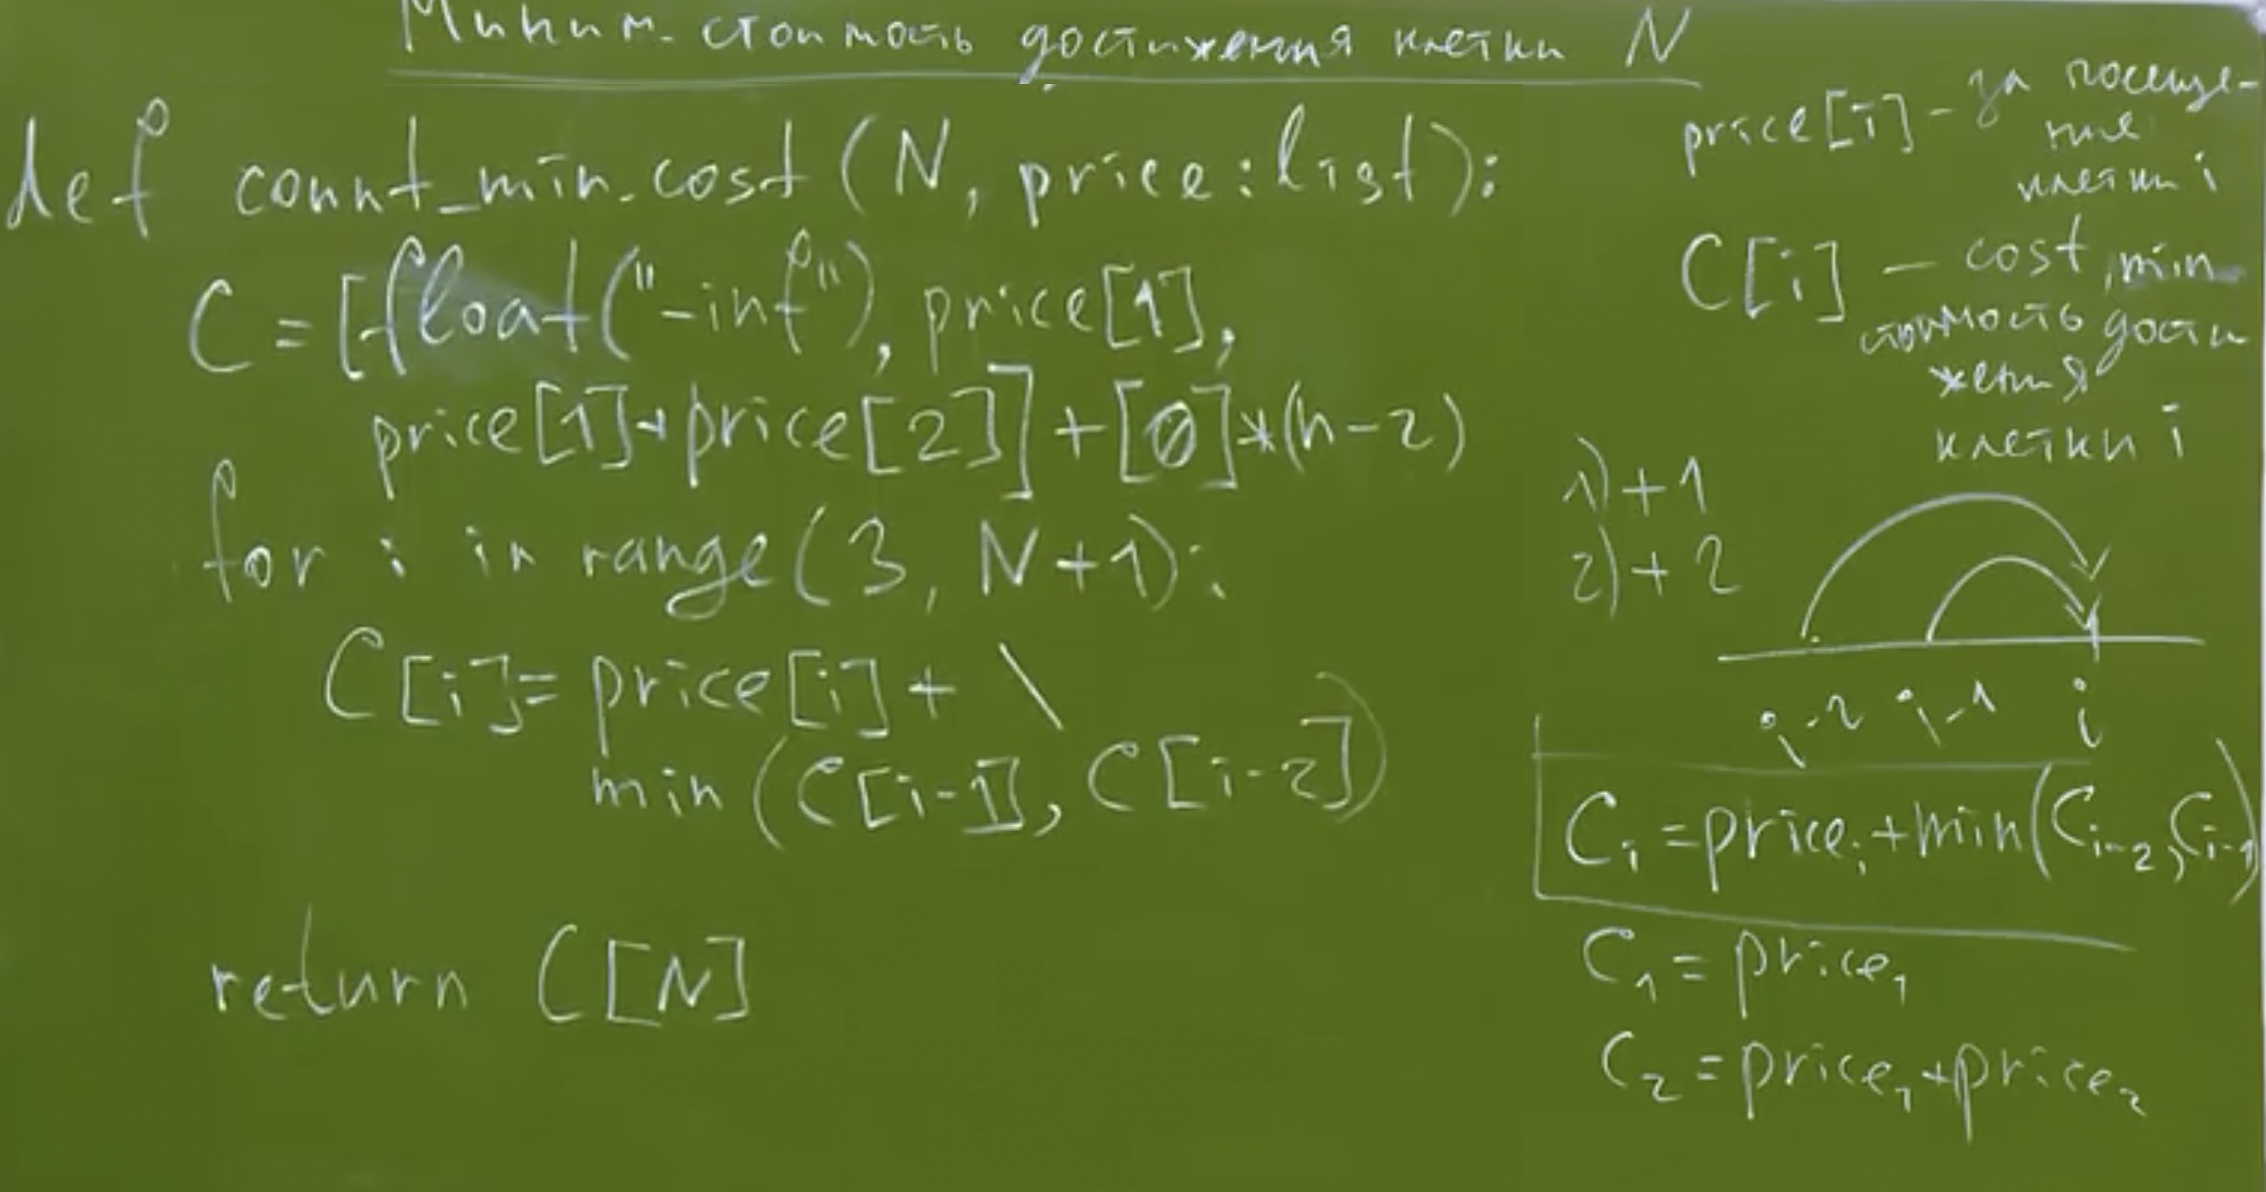 Миним. стоимость достижения клетки N
def count_min_cost(N, price:list):
C = [float("-inf"), price[1],
price[1]+price[2]] + [0]*(n-2)
for i in range(3, N+1):
C[i]= price[i] + \
min(C[i-1], C[i-2])
return C[N]
price[i] - за посеще-
ние
клетки i
C[i] - cost, min
стоимость дости
жения
клетки i
1) +1
2) +2
i-2 i-1 i
Cᵢ = priceᵢ + min(Cᵢ₋₂, Cᵢ₋₁)
C₁ = price₁
C₂ = price₁ + price₂